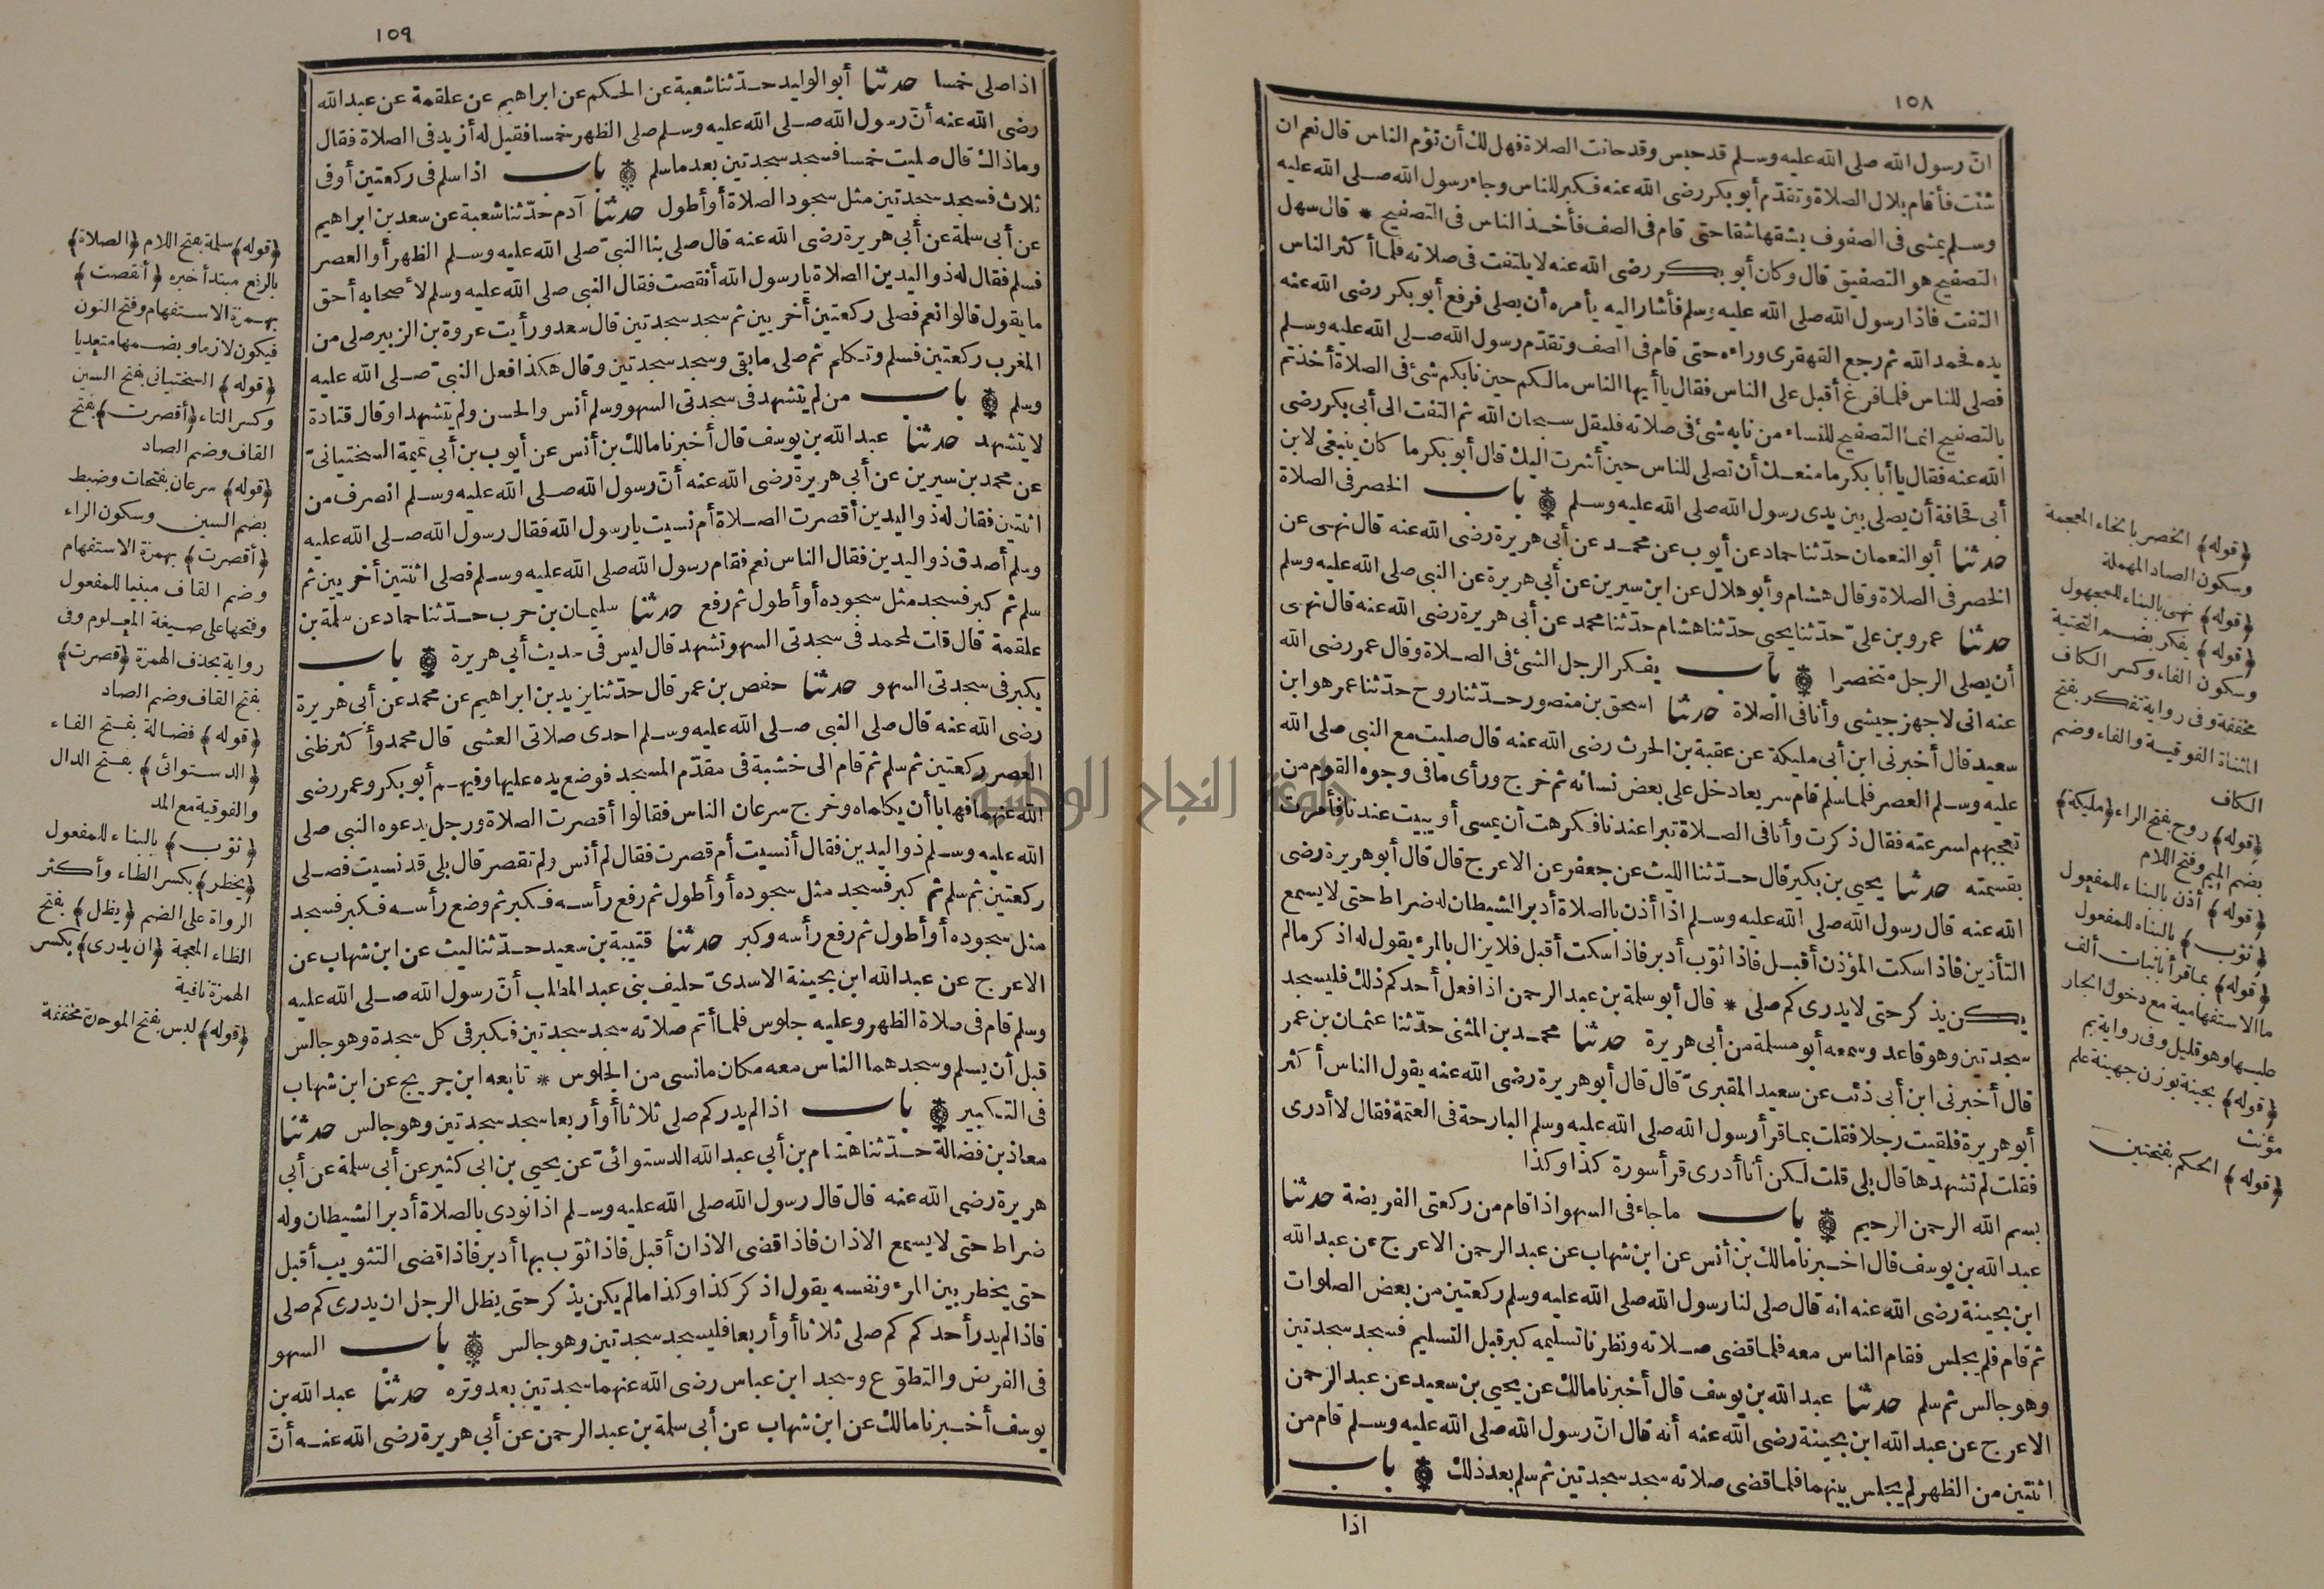 ١٥٨
انّ رسول الله صلى الله عليه وسلم قد حبس وقد حانت الصلاة فهل لك أن تؤم الناس قال نعم ان
شئت فأقام بلال الصلاة وتقدّم أبو بكر رضى الله عنه فكبر للناس وجاء رسول الله صلى الله عليه
وسلم يمشى فى الصفوف يشقها شقا حتى قام فى الصف فأخذ الناس فى التصفيح * قال سهل
التصفيح هو التصفيق قال وكان أبو بكر رضى الله عنه لا يلتفت فى صلاته فلما أكثر الناس
التفت فاذا رسول الله صلى الله عليه وسلم فأشار اليه يأمره أن يصلى فرفع أبو بكر رضى الله عنه
يده فحمد الله ثم رجع القهقرى وراءه حتى قام فى الصف وتقدّم رسول الله صلى الله عليه وسلم
فصلى للناس فلما فرغ أقبل على الناس فقال يا أيها الناس مالكم حين نابكم شئ فى الصلاة أخذتم
بالتصفيح انما التصفيح للنساء من نابه شئ فى صلاته فليقل سبحان الله ثم التفت الى أبى بكر رضى
الله عنه فقال يا أبا بكر ما منعك أن تصلى للناس حين أشرت اليك قال أبو بكر ما كان ينبغى لابن
أبى قحافة أن يصلى بين يدى رسول الله صلى الله عليه وسلم باب الخصر فى الصلاة
حدثنا أبو النعمان حدّثنا حماد عن أيوب عن محمد عن أبى هريرة رضى الله عنه قال نهى عن
الخصر فى الصلاة وقال هشام وأبو هلال عن ابن سيرين عن أبى هريرة عن النبى صلى الله عليه وسلم
حدثنا عمرو بن علىّ حدّثنا يحيى حدّثنا هشام حدّثنا محمد عن أبى هريرة رضى الله عنه قال نهى
أن يصلى الرجل مختصرا باب يفكر الرجل الشئ فى الصلاة وقال عمر رضى الله
عنه انى لاجهز جيشى وأنا فى الصلاة حدثنا اسحق بن منصور حدّثنا روح حدّثنا عمر هو ابن
سعيد قال أخبرنى ابن أبى مليكة عن عقبة بن الحرث رضى الله عنه قال صليت مع النبى صلى الله
عليه وسلم العصر فلما سلم قام سريعا دخل على بعض نسائه ثم خرج ورأى ما فى وجوه القوم من
تعجبهم لسرعته فقال ذكرت وأنا فى الصلاة تبرا عندنا فكرهت أن يمسى أو يبيت عندنا فأمرت
بقسمته حدثنا يحيى بن بكير قال حدّثنا الليث عن جعفر عن الاعرج قال قال أبو هريرة رضى
الله عنه قال رسول الله صلى الله عليه وسلم اذا أذن بالصلاة أدبر الشيطان له ضراط حتى لا يسمع
التأذين فاذا سكت المؤذن أقبل فاذا ثوب أدبر فاذا سكت أقبل فلا يزال بالمرء يقول له اذكر ما لم
يكن يذكر حتى لا يدرى كم صلى * قال أبو سلمة بن عبد الرحمن اذا فعل أحدكم ذلك فليسجد
سجدتين وهو قاعد وسمعه أبو سلمة من أبى هريرة حدثنا محمد بن المثنى حدّثنا عثمان بن عمر
قال أخبرنى ابن أبى ذئب عن سعيد المقبرىّ قال قال أبو هريرة رضى الله عنه يقول الناس أكثر
أبو هريرة فلقيت رجلا فقلت بما قرأ رسول الله صلى الله عليه وسلم البارحة فى العتمة فقال لا أدرى
فقلت لم تشهدها قال بلى قلت لكن أنا أدرى قرأ سورة كذا وكذا
بسم الله الرحمن الرحيم باب ما جاء فى السهو اذا قام من ركعتى الفريضة حدثنا
عبد الله بن يوسف قال اخبرنا مالك بن أنس عن ابن شهاب عن عبد الرحمن الاعرج عن عبد الله
ابن بحينة رضى الله عنه انه قال صلى لنا رسول الله صلى الله عليه وسلم ركعتين من بعض الصلوات
ثم قام فلم يجلس فقام الناس معه فلما قضى صلاته ونظرنا تسليمه كبر قبل التسليم فسجد سجدتين
وهو جالس ثم سلم حدثنا عبد الله بن يوسف قال أخبرنا مالك عن يحيى بن سعيد عن عبد الرحمن
الاعرج عن عبد الله ابن بحينة رضى الله عنه أنه قال انّ رسول الله صلى الله عليه وسلم قام من
اثنتين من الظهر لم يجلس بينهما فلما قضى صلاته سجد سجدتين ثم سلم بعد ذلك باب
اذا
(قوله) الخصر بالخاء المعجمة
وسكون الصاد المهملة
(قوله) نهى بالبناء للمجهول
(قوله) يفكر بضم التحتية
وسكون الفاء وكسر الكاف
مخففة وفى رواية تفكر بفتح
المثناة الفوقية والفاء وضم
الكاف
(قوله) روح بفتح الراء (مليكة)
بضم الميم وفتح اللام
(قوله) أذن بالبناء للمفعول
(ثوب) بالبناء للمفعول
(قوله) بما قرأ باثبات ألف
ما الاستفهامية مع دخول الجار
عليها وهو قليل وفى رواية بم
(قوله) بحينة بوزن جهينة علم
مؤنث
(قوله) الحكم بفتحتين
١٥٩
اذا صلى خمسا حدثنا أبو الوليد حدّثنا شعبة عن الحكم عن ابراهيم عن علقمة عن عبد الله
رضى الله عنه أنّ رسول الله صلى الله عليه وسلم صلى الظهر خمسا فقيل له أزيد فى الصلاة فقال
وما ذاك قال صليت خمسا فسجد سجدتين بعد ما سلم باب اذا سلم فى ركعتين أو فى
ثلاث فسجد سجدتين مثل سجود الصلاة أو أطول حدثنا آدم حدّثنا شعبة عن سعد بن ابراهيم
عن أبى سلمة عن أبى هريرة رضى الله عنه قال صلى بنا النبىّ صلى الله عليه وسلم الظهر أو العصر
فسلم فقال له ذو اليدين الصلاة يا رسول الله أنقصت فقال النبى صلى الله عليه وسلم لأصحابه أحق
ما يقول قالوا نعم فصلى ركعتين أخريين ثم سجد سجدتين قال سعد ورأيت عروة بن الزبير صلى من
المغرب ركعتين فسلم وتكلم ثم صلى ما بقى وسجد سجدتين وقال هكذا فعل النبىّ صلى الله عليه
وسلم باب من لم يتشهد فى سجدتى السهو وسلم أنس والحسن ولم يتشهدا وقال قتادة
لا يتشهد حدثنا عبد الله بن يوسف قال أخبرنا مالك بن أنس عن أيوب بن أبى تميمة السختيانىّ
عن محمد بن سيرين عن أبى هريرة رضى الله عنه أنّ رسول الله صلى الله عليه وسلم انصرف من
اثنتين فقال له ذو اليدين أقصرت الصلاة أم نسيت يا رسول الله فقال رسول الله صلى الله عليه
وسلم أصدق ذو اليدين فقال الناس نعم فقام رسول الله صلى الله عليه وسلم فصلى اثنتين أخريين ثم
سلم ثم كبر فسجد مثل سجوده أو أطول ثم رفع حدثنا سليمان بن حرب حدّثنا حماد عن سلمة بن
علقمة قال قلت لمحمد فى سجدتى السهو تشهد قال ليس فى حديث أبى هريرة باب
يكبر فى سجدتى السهو حدثنا حفص بن عمر قال حدّثنا يزيد بن ابراهيم عن محمد عن أبى هريرة
رضى الله عنه قال صلى النبى صلى الله عليه وسلم احدى صلاتى العشى قال محمد وأكثر ظنى
العصر ركعتين ثم سلم ثم قام الى خشبة فى مقدّم المسجد فوضع يده عليها وفيهم أبو بكر وعمر رضى
الله عنهما فهابا أن يكلماه وخرج سرعان الناس فقالوا أقصرت الصلاة ورجل يدعوه النبى صلى
الله عليه وسلم ذو اليدين فقال أنسيت أم قصرت فقال لم أنس ولم تقصر قال بلى قد نسيت فصلى
ركعتين ثم سلم ثم كبر فسجد مثل سجوده أو أطول ثم رفع رأسه فكبر ثم وضع رأسه فكبر فسجد
مثل سجوده أو أطول ثم رفع رأسه وكبر حدثنا قتيبة بن سعيد حدّثنا ليث عن ابن شهاب عن
الاعرج عن عبد الله ابن بحينة الاسدىّ حليف بنى عبد المطلب أنّ رسول الله صلى الله عليه
وسلم قام فى صلاة الظهر وعليه جلوس فلما أتم صلاته سجد سجدتين فكبر فى كل سجدة وهو جالس
قبل أن يسلم وسجدهما الناس معه مكان ما نسى من الجلوس * تابعه ابن جريج عن ابن شهاب
فى التكبير باب اذا لم يدر كم صلى ثلاثا أو أربعا سجد سجدتين وهو جالس حدثنا
معاذ بن فضالة حدّثنا هشام بن أبى عبد الله الدستوائىّ عن يحيى بن ابى كثير عن أبى سلمة عن أبى
هريرة رضى الله عنه قال قال رسول الله صلى الله عليه وسلم اذا نودى بالصلاة أدبر الشيطان وله
ضراط حتى لا يسمع الاذان فاذا قضى الاذان أقبل فاذا ثوب بها أدبر فاذا قضى التثويب أقبل
حتى يخطر بين المرء ونفسه يقول اذكر كذا وكذا ما لم يكن يذكر حتى يظل الرجل ان يدرى كم صلى
فاذا لم يدر أحدكم كم صلى ثلاثا أو أربعا فليسجد سجدتين وهو جالس باب السهو
فى الفرض والتطوّع وسجد ابن عباس رضى الله عنهما سجدتين بعد وتره حدثنا عبد الله بن
يوسف أخبرنا مالك عن ابن شهاب عن أبى سلمة بن عبد الرحمن عن أبى هريرة رضى الله عنه أنّ
(قوله) سلمة بفتح اللام (الصلاة)
بالرفع مبتدأ خبره (أنقصت)
بهمزة الاستفهام وفتح النون
فيكون لازما وبضمها متعديا
(قوله) السختيانى بفتح السين
وكسر التاء (أقصرت) بفتح
القاف وضم الصاد
(قوله) سرعان بفتحات وضبط
بضم السين وسكون الراء
(أقصرت) بهمزة الاستفهام
وضم القاف مبنيا للمفعول
وفتحها على صيغة المعلوم وفى
رواية بحذف الهمزة (قصرت)
بفتح القاف وضم الصاد
(قوله) فضالة بفتح الفاء
(الدستوائى) بفتح الدال
والفوقية مع المد
(ثوب) بالبناء للمفعول
(يخطر) بكسر الطاء وأكثر
الرواة على الضم (يظل) بفتح
الظاء المعجمة (ان يدرى) بكسر
الهمزة نافية
(قوله) لبس بفتح الموحدة مخففة
جامعة النجاح الوطنية